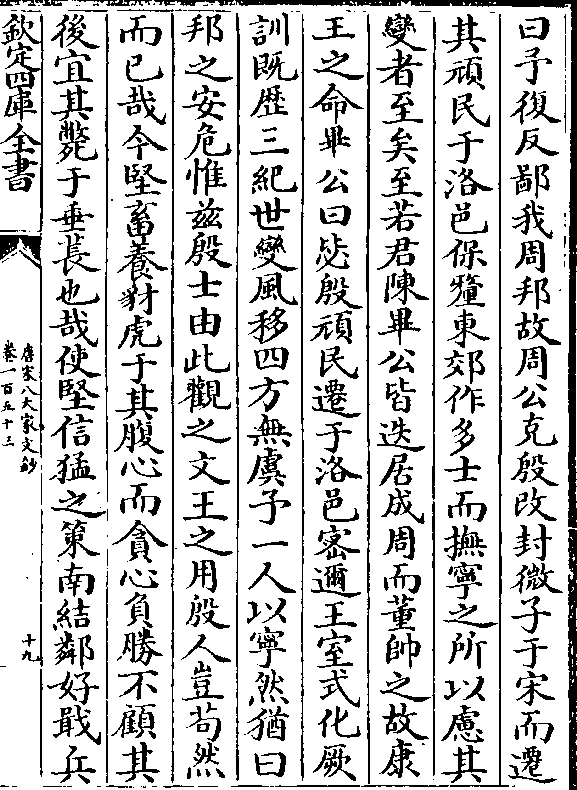 曰予復反鄙我周邦故周公克殷改封微子于宋而遷
其頑民于洛邑保釐東郊作多士而撫寧之所以慮其
變者至矣至若君陳畢公皆迭居成周而董帥之故康
王之命畢公曰毖殷頑民遷于洛邑密邇王室式化厥
訓既歴三紀世變風移四方無虞予一人以寧然猶曰
邦之安危惟兹殷士由此觀之文王之用殷人豈苟然
而已哉今堅畜養豺虎于其腹心而貪心負勝不顧其
後宜其斃于垂長也哉使堅信猛之策南結鄰好戢兵
欽定四庫全書
唐宋八大家文鈔
卷一百五十三
十九